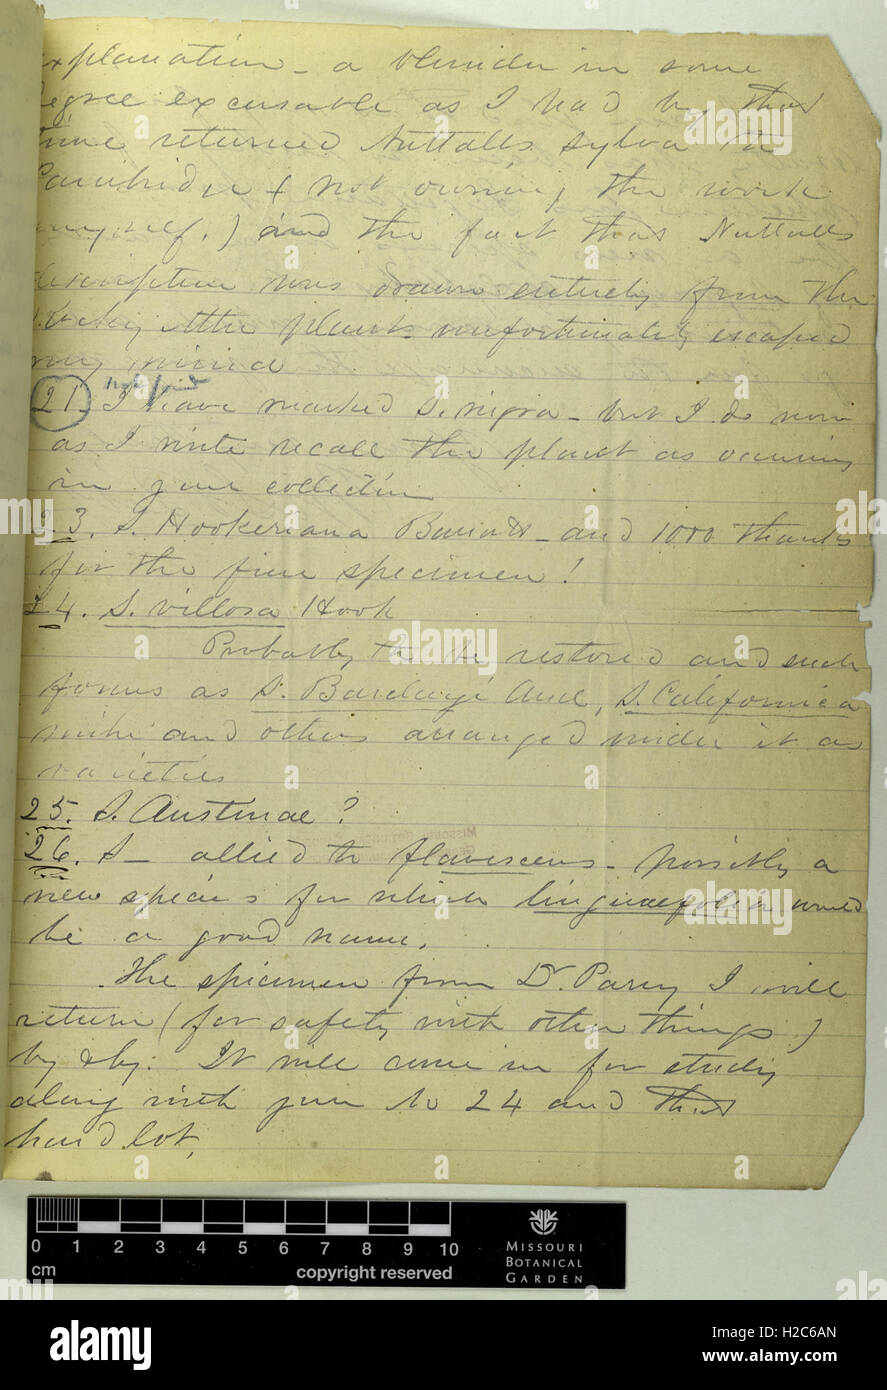 explanation – a blunder in some
degree excusable as I had by that
time returned Nuttalls Sylva to
Cambridge & not owning the work
myself.) and the fact that Nuttalls
description was drawn entirely from the
the plant unfortunately escaped
my mind
21. I have marked S. nigra – but I do now
as I write recall the plant as occuring
in your collection
23. S. Hookeriana Barratt – and 1000 thanks
for the fine specimen!
24. S. villosa Hook
Probably to be restored and such
forms as S. Barclayi And, S. Californica
and others arranged under it as
varieties
25. S. Austinae?
26. S – allied to flavescens – possibly a
new species for which linguaefolia would
be a good name.
The specimen from Dr. Parry I will
return (for safety with other things)
by & by. It will come in for study
along with your No 24 and that
hard lot.
0 1 2 3 4 5 6 7 8 9 10
cm
copyright reserved
MISSOURI
BOTANICAL
GARDEN
alamy
Image ID: H2C6AN
www.alamy.com